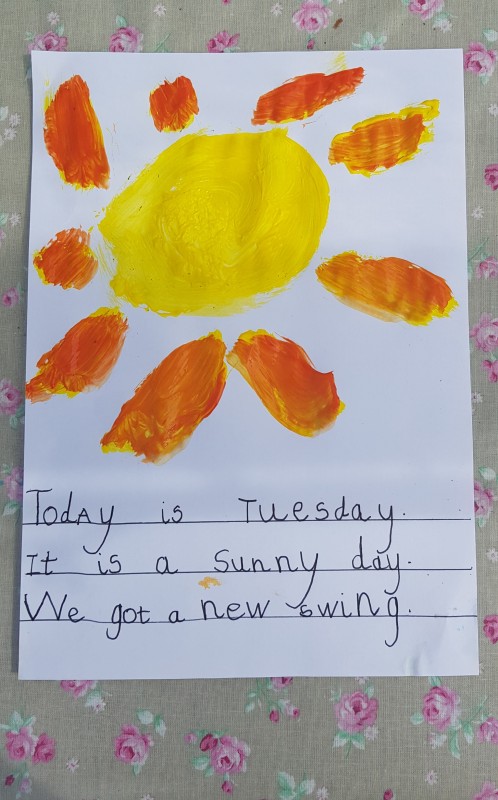 Today is Tuesday.
It is a sunny day.
We got a new swing.